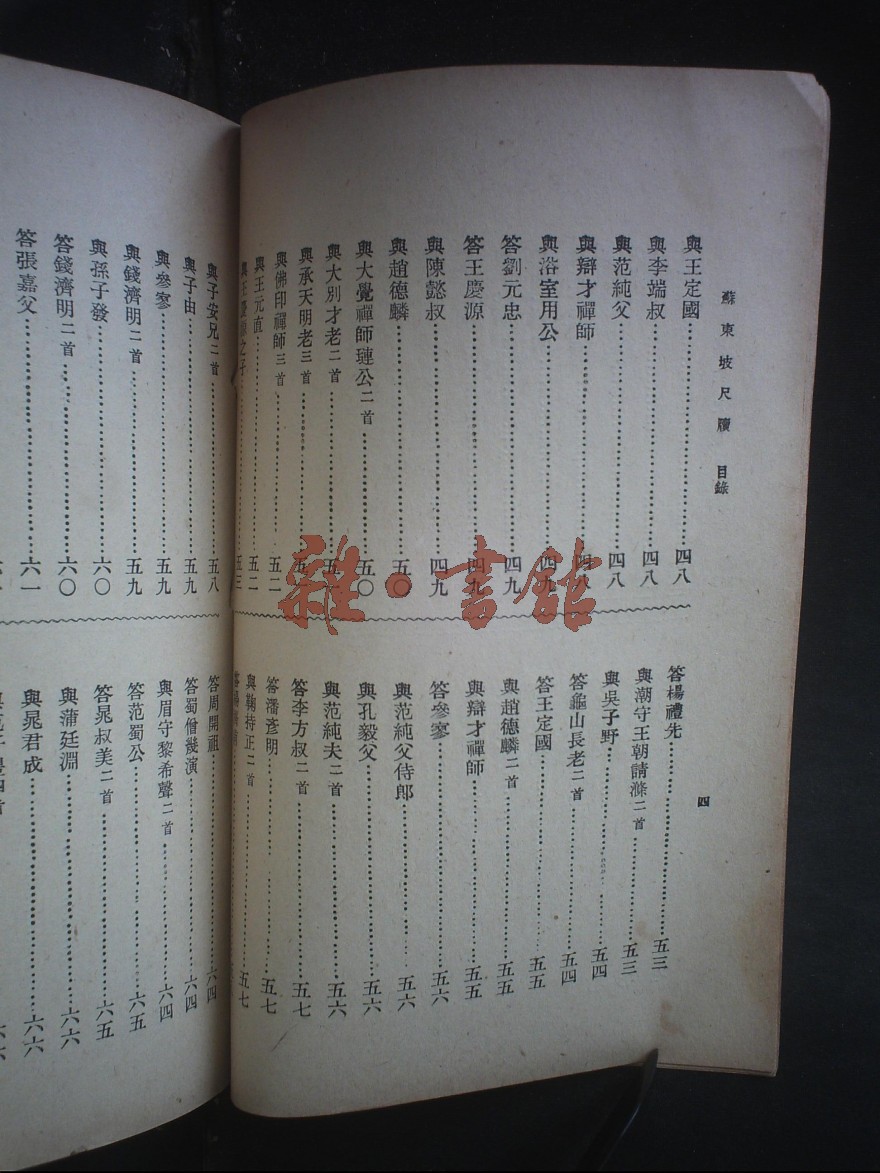 蘇東坡尺牘 目錄
四
與王定國 四八
與李端叔 四八
與范純父 四八
與辯才禪師 四八
與浴室用公 四九
答劉元忠 四九
答王慶源 四九
與陳懿叔 四九
與趙德麟 五〇
與大覺禪師璉公二首 五〇
與大別才老二首
與承天明老三首
與佛印禪師三首 五二
與王元直 五二
與王慶源之子 五三
答楊禮先 五三
與潮守王朝請滌二首 五三
與吳子野 五四
答龜山長老二首 五四
答王定國 五五
與趙德麟二首 五五
與辯才禪師 五五
答參寥 五六
與范純父侍郎 五六
與孔毅父 五六
與范純夫二首 五六
答李方叔二首 五七
答潘彥明 五七
與鞠持正二首 五七
與子安兄二首 五八
與子由 五九
與參寥 五九
與錢濟明二首 五九
與孫子發 六〇
答錢濟明二首 六〇
答張嘉父 六一
答周開祖 六四
答蜀僧幾演 六四
與眉守黎希聲二首 六四
答范蜀公 六五
答晁叔美二首 六五
與蒲廷淵 六六
與晁君成 六六
雜·書館